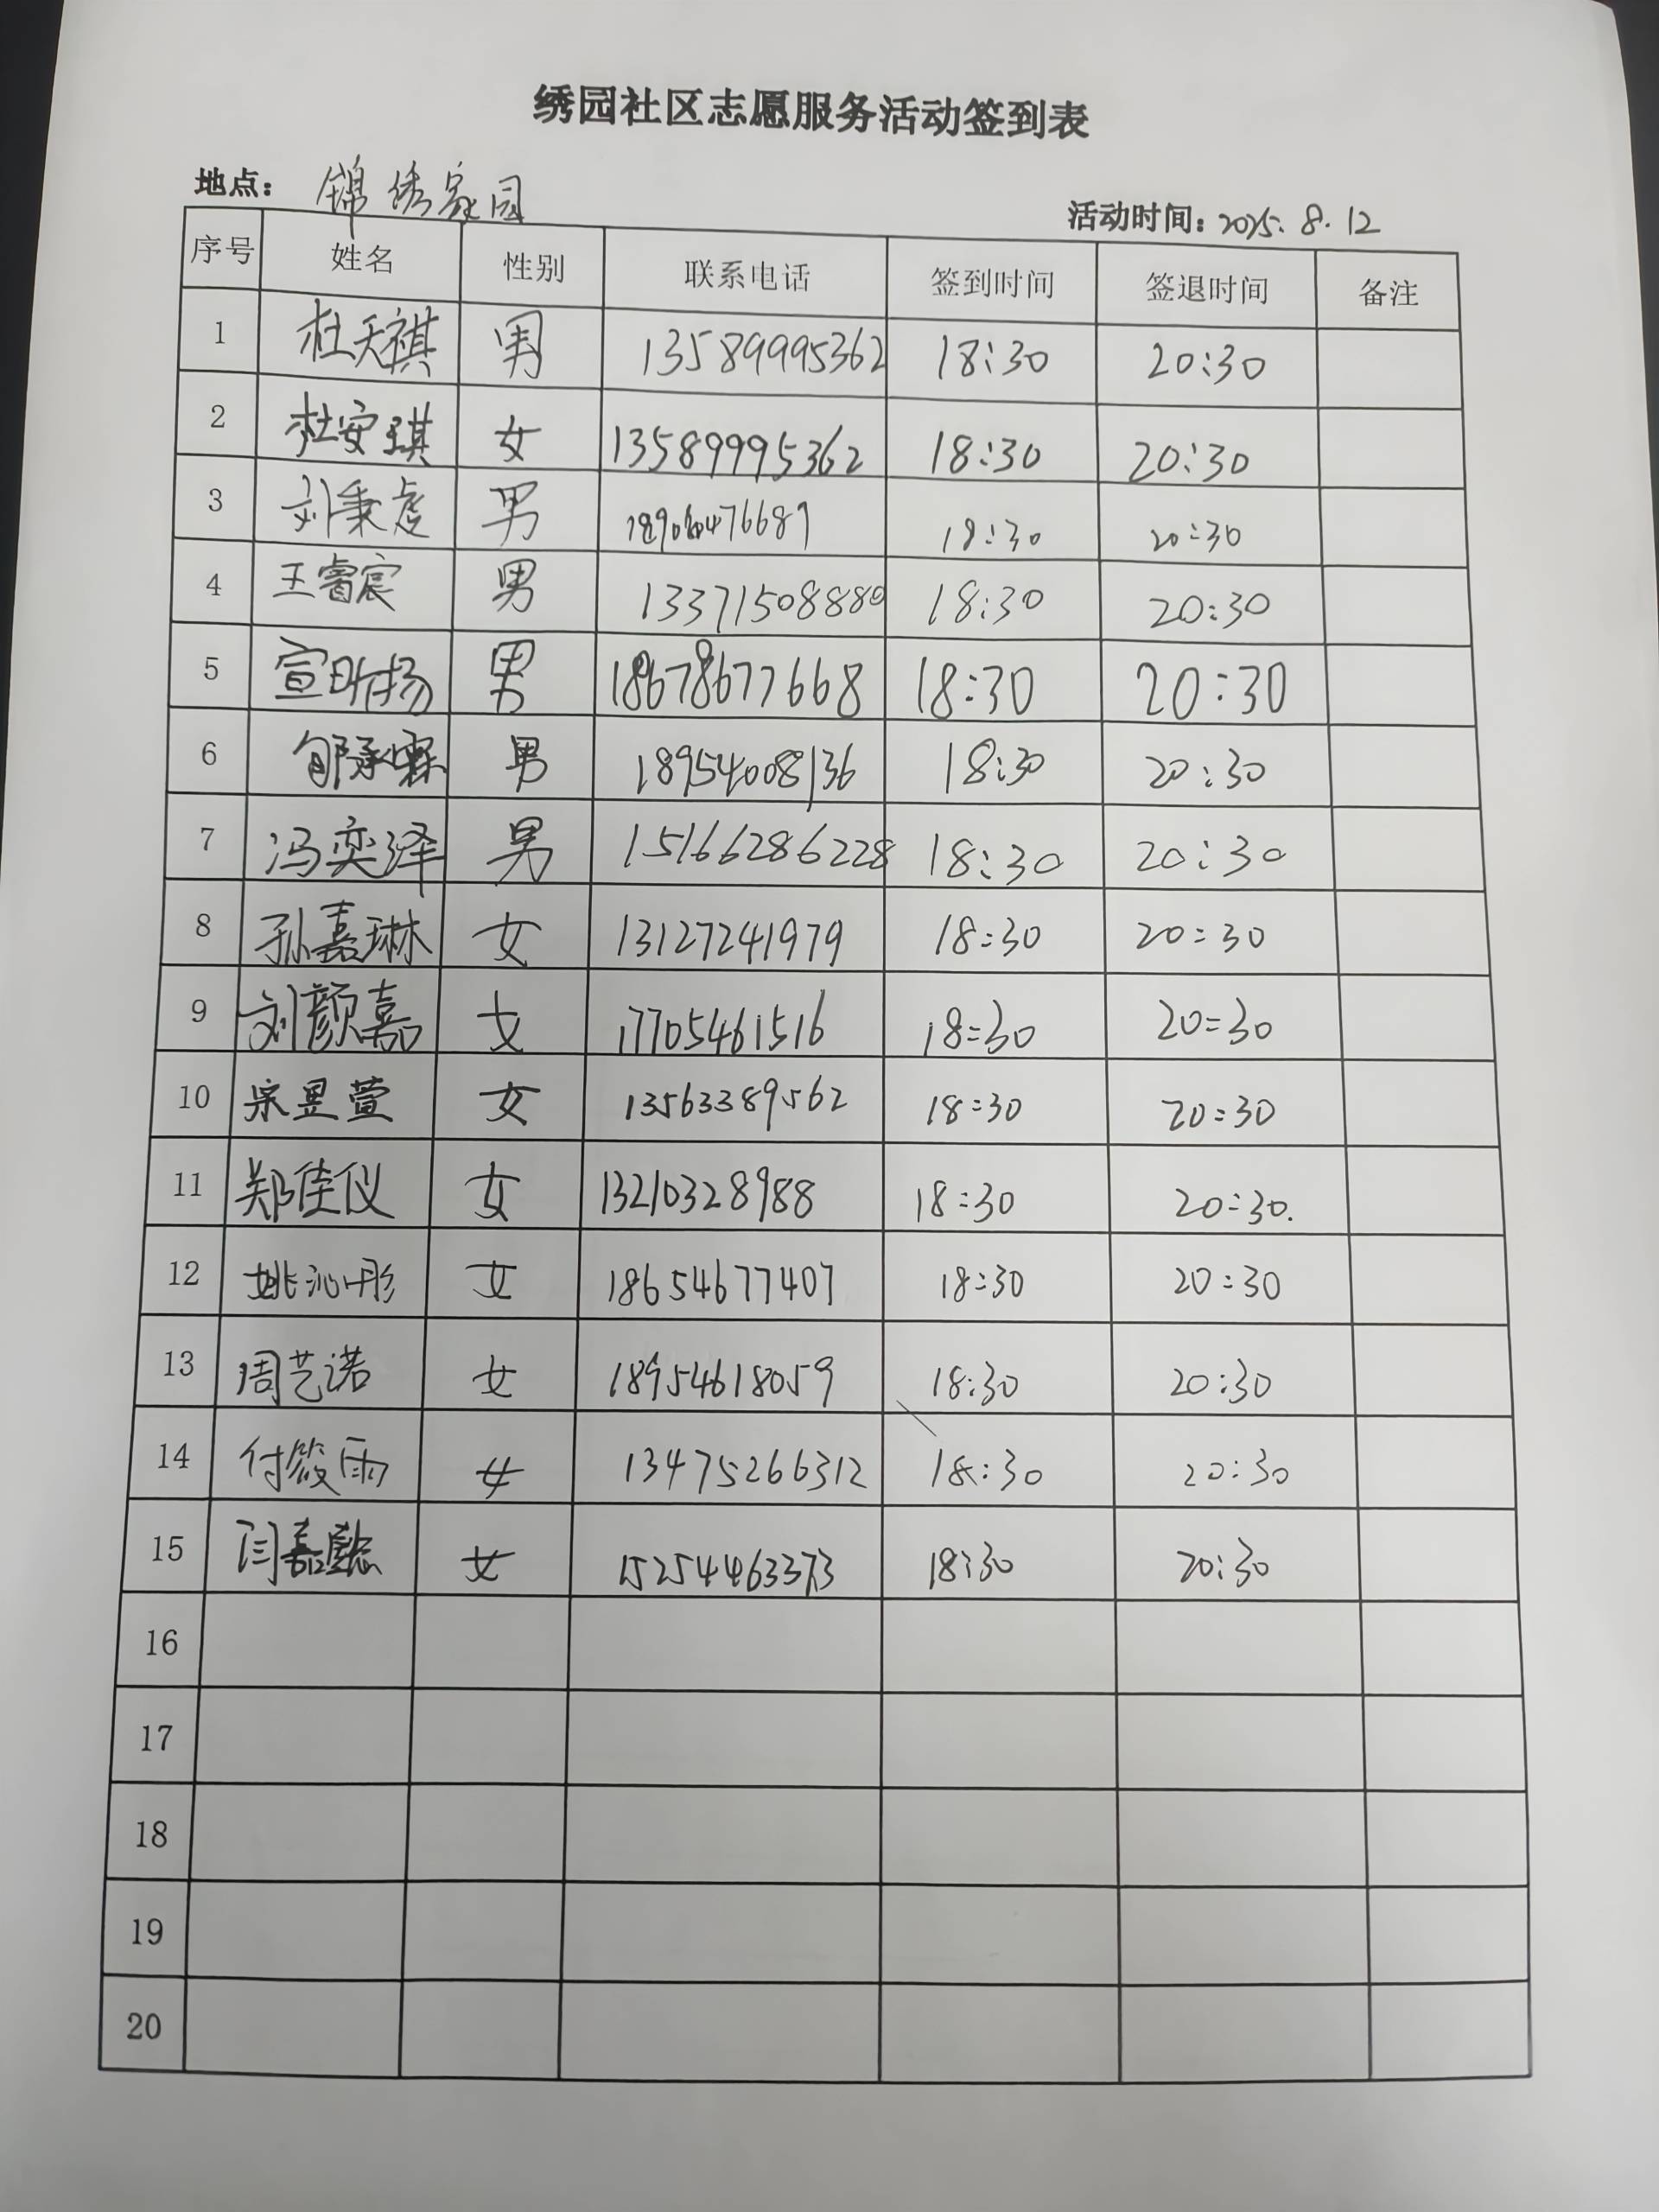 绣园社区志愿服务活动签到表
地点: 锦绣家园
活动时间: 2025.8.12
序号 姓名 性别 联系电话 签到时间 签退时间 备注
1 杜天祺 男 13589995362 18:30 20:30
2 杜安琪 女 13589995362 18:30 20:30
3 刘秉虔 男 18:30 20:30
4 王睿宸 男 13371508880 18:30 20:30
5 宣昕扬 男 18678677668 18:30 20:30
6 男 18954008136 18:30 20:30
7 冯奕泽 男 15166286228 18:30 20:30
8 孙嘉琳 女 13127241979 18:30 20:30
9 刘颜嘉 女 17705461516 18:30 20:30
10 宋昱萱 女 13563389562 18:30 20:30
11 郑佳仪 女 13210328988 18:30 20:30.
12 姚沁彤 女 18654677407 18:30 20:30
13 周艺诺 女 18954618059 18:30 20:30
14 付筱雨 女 13475266312 18:30 20:30
15 女 15254463373 18:30 20:30
16
17
18
19
20